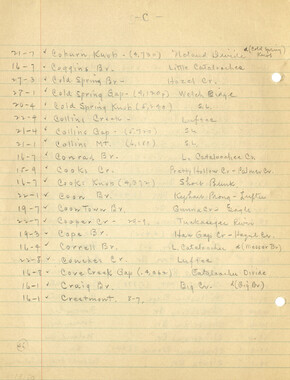 - C -
21-7 Cokura Knob - (4,720) Noland Divide & (Cold Spring Knob
16-7 Coggins Br. Little Cataloochee
27-3 Cold Spring Br - Hazel Cr.
25-1 Cold Spring Gap - Welch Ridge
20-4 Cold Spring Knob (5,240) S.L.
22-4 Collins Creek - Luftee
21-4 Collins Gap - (5,720) S.L.
21-1 Collins Mt. S.L.
16-7 Conrad Br. L. Cataloochee Ck
15-9 Cooks Cr. Hollow Cr -
16-7 Cooks Knob Short Bunk
22-1 Coon Br. Kephart Prong - Luftee
19-7 Coon Town Cr. Gunna Cr - Eagle
22-7 Cooper Cr Tuckaseegee River
19-3 Cope Br. Haw Gap Cr - Hazel Cr.
16-4 Correll Br. L. Cataloochee & (Messer Br)
22-5 Couches Cr. Luftee
16-8 Cove Creek Gap Cataloochee Divide
16-1 Craig Br. Big Cr. & (Big Br)
16-1 Crestmont